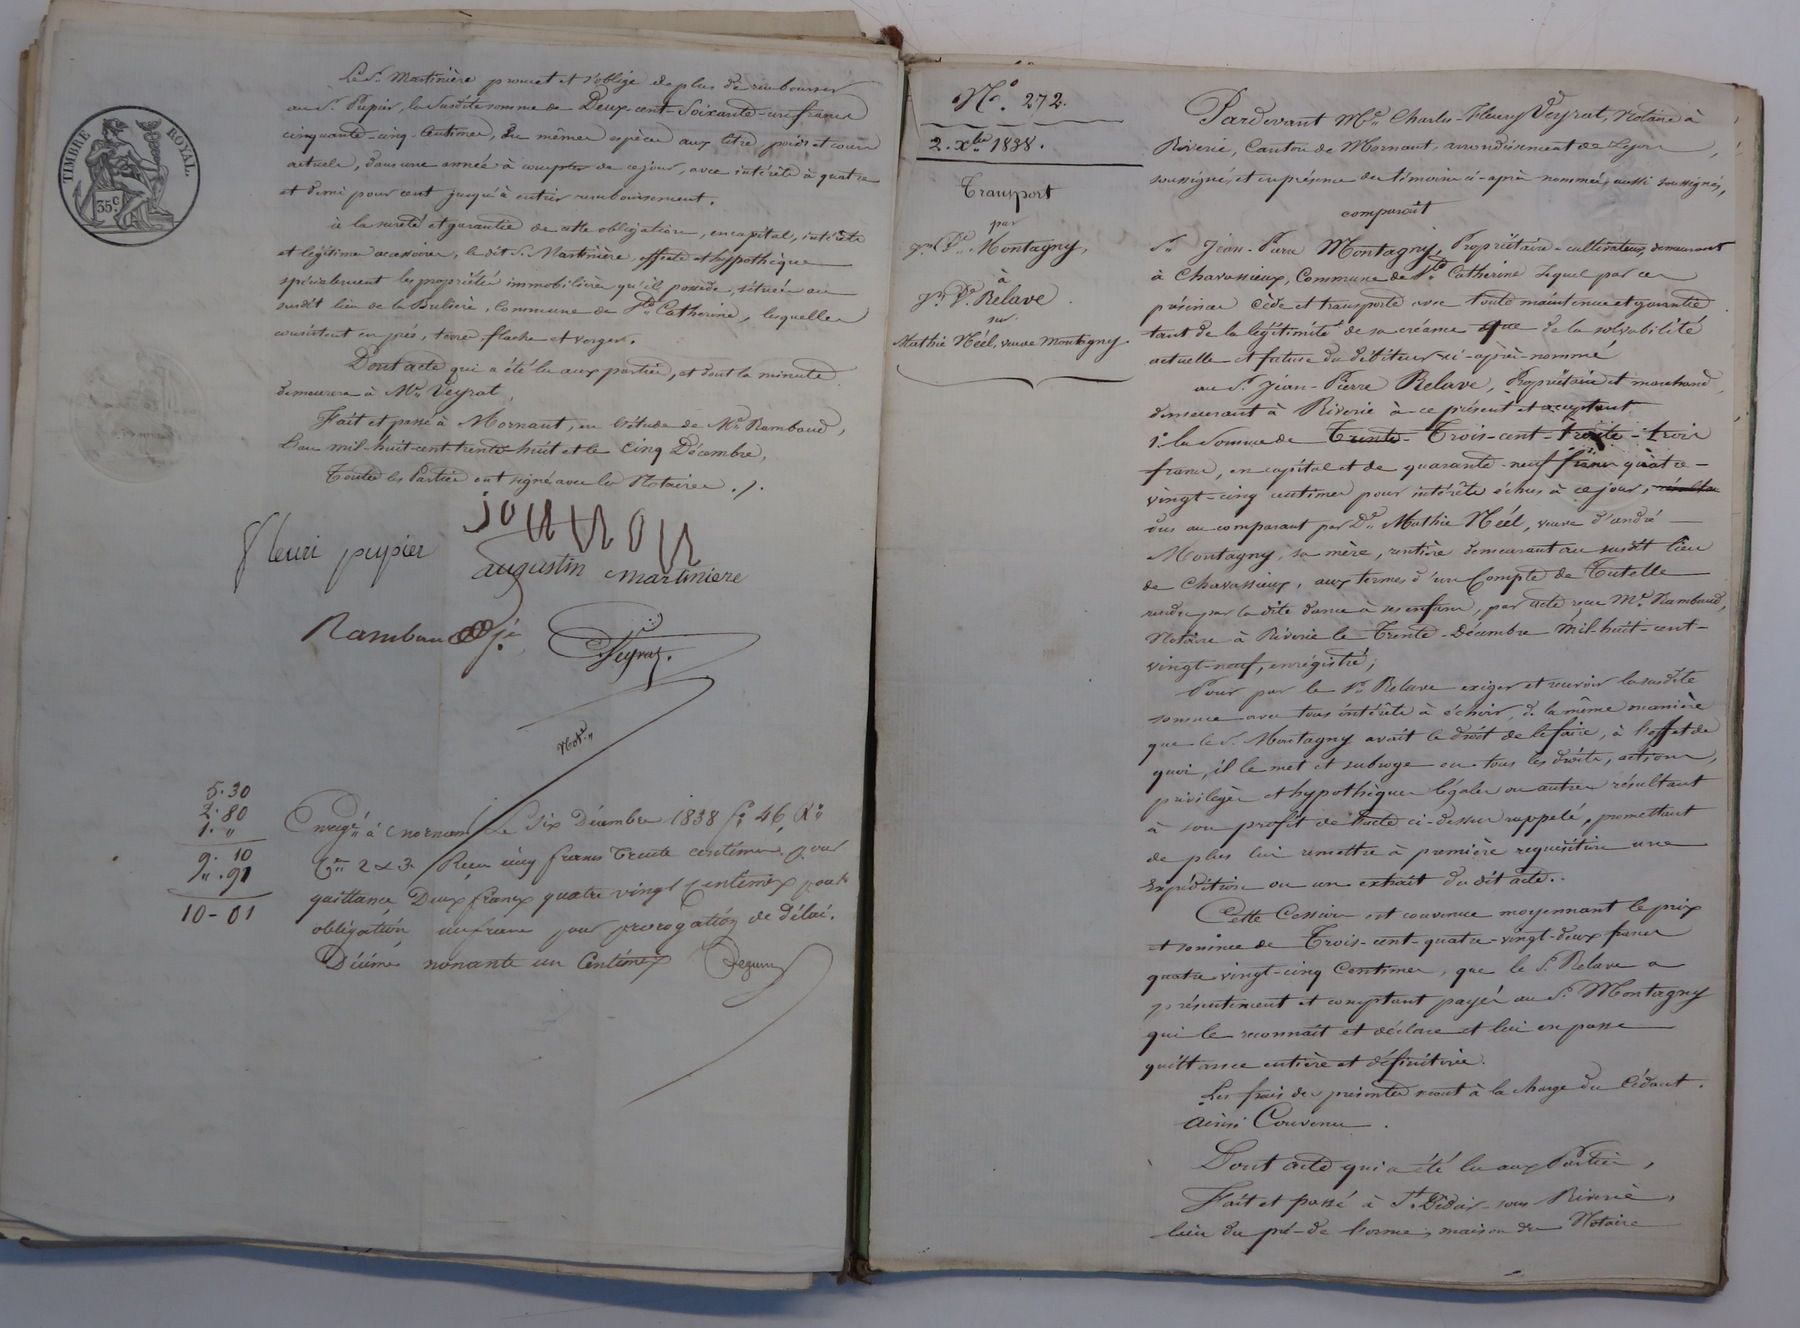 TIMBRE ROYAL.
35 c.
Le Sr. Martinière promet et s'oblige de plus de rembourser
au Sr. Pupier, la susdite somme de Deux-cent-Soixante-un francs
cinquante-cinq centimes, en mêmes espèces aux titre, poids et cours
actuels, dans une année à compter de ce jour, avec intérêts à quatre
et demi pour cent jusqu'à entier remboursement.
à la sureté et garantie de cette obligation, en capital, intérêts
et légitimes accessoires, le dit Sr. Martinière, affecte et hypothèque
spécialement les propriétés immobilières qu'il possède, situées au
susdit lieu de la Bulière, Commune de Ste. Catherine, lesquelles
consistent en prés, terre flache et verger.
Dont acte qui a été lu aux parties, et dont la minute
demeurera à Me. Veyrat.
Fait et passé à Mornant, en l'étude de Me. Rambaud,
L'an mil-huit-cent-trente-huit et le Cinq Décembre,
Toutes les Parties ont signé avec les Notaires ./.
fleuri pupier
augustin martiniere
Rambaud
Veyrat.
Note
5. 30
2. 80
1. "
9. 10
" . 91
10 - 01
Enregé. à Mornant Le Six Décembre 1838 f° 46, Ro
Ces 2 & 3. Reçu cinq francs Trente centimes pour
quittance Deux francs quatre vingt centimes pour
obligation un franc pour prorogation de délai.
Décime nonante un Centimes
No. 272.
2. Xbre 1838.
Transport
par
Jn. Pre. Montagny,
à
Jn. Pre. Relave.
sur
Mathie Néél, veuve Montagny.
Pardevant Me. Charles-Fleury Veyrat, Notaire à
Riverie, Canton de Mornant, arrondissement de Lyon,
soussigné, et en présence des témoins ci-après nommés, aussi soussignés,
comparaît
Sr. Jean-Pierre Montagny, Propriétaire-cultivateur, demeurant
à Chavassieux, Commune de Ste. Catherine Lequel par ces
présentes Cède et transporte avec toute maintenue et garantie
tant de la légitimité de sa créance que de la solvabilité
actuelle et future du débiteur ci-après-nommé,
au Sr. Jean-Pierre Relave, Propriétaire et marchand
demeurant à Riverie à ce présent et acceptant
1° la Somme de Trente-Trois-cent-trente-trois
francs, en capital et de quarante-neuf francs quatre-
vingt-cinq centimes pour intérêts échus à ce jour,
dus au comparant par De. Mathie Néél, veuve d'andré
Montagny, sa mère, rentière demeurant au susdit lieu
de Chavassieux, aux termes d'un Compte de Tutelle
rendu par la dite dame à ses enfans, par acte reçu Me. Rambaud,
Notaire à Riverie le Trente-Décembre Mil-huit-cent-
vingt-neuf, enrégistré;
Pour par le Sr. Relave exiger et recevoir la susdite
somme avec tous intérêts à échoir, de la même manière
que le Sr. Montagny avait le droit de le faire, à l'effet de
quoi, il le met et subroge en tous les droits, actions,
privilèges et hypothèques légales ou autres résultant
à son profit de l'acte ci-dessus rappelé, promettant
de plus lui remettre à première requisition une
Expédition ou un extrait du dit acte.
Cette Cession est convenue moyennant le prix
et somme de Trois-cent-quatre-vingt-deux francs
quatre vingt-cinq Centimes, que le Sr. Relave a
présentement et comptant payés au Sr. Montagny
qui le reconnaît et déclare et lui en passe
quittance entière et définitive.
Les frais des présentes seront à la charge du Cédant.
Ainsi Convenu.
Dont acte qui a été lu aux Parties,
Fait et passé à St. Didier-sous Riverie,
lieu du pré-de l'orme, maison du Notaire